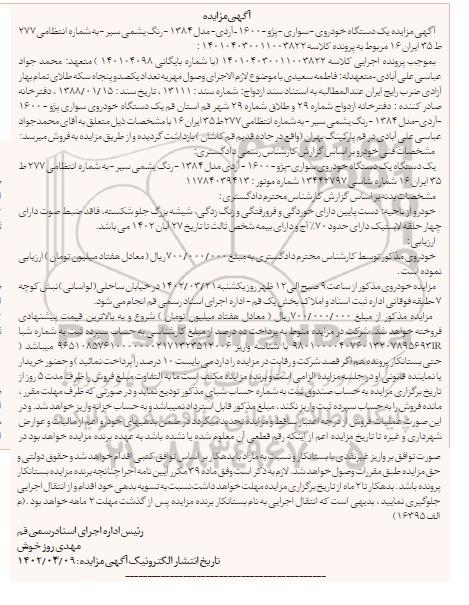 آگهی مزایده
آگهی مزایده یک دستگاه خودروی -سواری -پژو -۱۶۰۰ -آردی-مدل ۱۳۸۴ - رنگ یشمی سیر -به شماره انتظامی ۲۷۷
ط ۳۵ ایران ۱۶ مربوط به پرونده کلاسه ۱۴۰۱۰۴۰۳۰۰۱۱۰۰۳۸۲۲ :
بموجب پرونده اجرایی کلاسه ۱۴۰۱۰۴۰۳۰۰۱۱۰۰۳۸۲۲ (با شماره بایگانی ۱۴۰۱۰۴۰۹۸ ) متعهد: محمد جواد
عباسی علی آبادی -متعهدله: فاطمه سعیدی با موضوع لازم الاجرای وصول مهریه تعداد یکصدو پنجاه سکه طلای تمام بهار
آزادی ضرب رایج ایران عندالمطالبه به استناد سند ازدواج: شماره سند: ۱۳۱۱۱ ، تاریخ سند : ۱۳۸۸/۰۱/۱۵ ، دفترخانه
صادر کننده : دفترخانه ازدواج شماره ۲۹ و طلاق شماره ۲۹ شهر قم استان قم یک دستگاه خودروی سواری پژو -۱۶۰۰
-آردی-مدل ۱۳۸۴ - رنگ یشمی سیر -به شماره انتظامی ۲۷۷ ط ۳۵ ایران ۱۶ با مشخصات ذیل متعلق به آقای محمد جواد
عباسی علی آبادی در قم پارکینگ بهاران (واقع در جاده قدیم قم کاشان ) بازداشت گردیده و از طریق مزایده به فروش میرسد:
مشخصات فنی خودرو بر اساس گزارش کارشناس رسمی دادگستری:
یک دستگاه یک دستگاه خودروی سواری -پژو -۱۶۰۰ - آردی مدل ۱۳۸۴ - رنگ یشمی سیر -به شماره انتظامی ۲۷۷ ط
۳۵ ایران ۱۶ شماره شاسی ۱۳۴۴۲۷۹۷ شماره موتور : ۱۱۷۸۴۰۳۹۴۱۳
مشخصات بدنه بر اساس گزارش کارشناس محترم دادگستری:
خودرو از ناحیه: دست پایین دارای خوردگی و فرورفتگی و رنگ زدگی، شیشه بزرگ جلو شکسته، فاقد ضبط صوت دارای
چهار حلقه لاستیک دارای حدود ۷۰٪ آج و دارای بیمه شخص ثالث تا تاریخ ۲۷ آبان ۱۴۰۲ می باشد.
ارزیابی:
خودروی مذکور توسط کارشناس محترم دادگستری به مبلغ ۷۰۰/۰۰۰/۰۰۰ ریال ( معادل هفتاد میلیون تومان ) ارزیابی
نموده است.
مزایده خودروی مذکور از ساعت ۹ صبح الی ۱۲ ظهر روز یکشنبه ۱۴۰۲/۰۳/۲۱ در خیابان ساحلی (لواسانی) نبش کوچه
۷ -طبقه فوقانی اداره ثبت اسناد و املاک بخش یک قم - اداره اجرای اسناد رسمی قم انجام می شود.
مزایده مذکور از مبلغ ۷۰۰/۰۰۰/۰۰۰ ریال ( معادل هفتاد میلیون تومان ) شروع و به بالاترین قیمت پیشنهادی
فروخته خواهد شد. شرکت در مزایده منوط به پرداخت ده درصد از مبلغ کارشناسی به حساب سپرده ثبت به شماره شبا
حتی بستانکار پرونده هم اگر قصد شرکت و رقابت در مزایده را دارد می بایست ۱۰ درصد را پرداخت نمائید ) و حضور خریدار
یا نماینده قانونی او در جلسه مزایده الزامی است و برنده مزایده مکلف است ما به التفاوت مبلغ فروش را ظرف مدت ۵ روز از
تاریخ برگزاری مزایده به حساب صندوق ثبت به شماره حساب شبای مذکور تودیع نماید و در صورتی که ظرف مهلت مقرر ،
مانده فروش را به حساب سپرده ثبت واریز نکند ، مبلغ مذکور قابل استرداد نمیباشد و به حساب خزانه واریز خواهد شد. و در
این صورت عملیات فروش از درجه اعتبار ساقط و مزایده تجدید میگردد در ضمن بدهیهای خودرو اعم از مالیات و عوارض
شهرداری و غیره تا تاریخ مزایده اعم از اینکه رقم قطعی آن معلوم شده یا نشده باشد به عهده برنده مزایده خواهد بود در
صورت توافق بر واریز غیرنقدی با بستانکار و نسبت به مازاد باید هکار بر اساس توافق کتبی اقدام خواهد شد و حقوق دولتی و
حق مزایده طبق مقررات وصول خواهد شد. لازم به ذکر است وفق ماده ۳۹ مکرر آیین نامه اجرا چنانچه برنده مزایده بستانکار
پرونده باشد . بدهکار تا ۲ ماه از تاریخ برگزاری مزایده مهلت خواهد داشت نسبت به تسویه بدهی خود اقدام و از انتقال اجرایی
جلوگیری نمایید ، بدیهی است که انتقال اجرایی به نام بستانکار برنده مزایده پس از گذشت مهلت ۲ ماهه خواهد بود . (م
الف ۱۶۳۹۵)
رئیس اداره اجرای اسناد رسمی قم
مهدی روز خوش
تاریخ انتشار الکترونیک آگهی مزایده: ۱۴۰۲/۰۳/۰۹